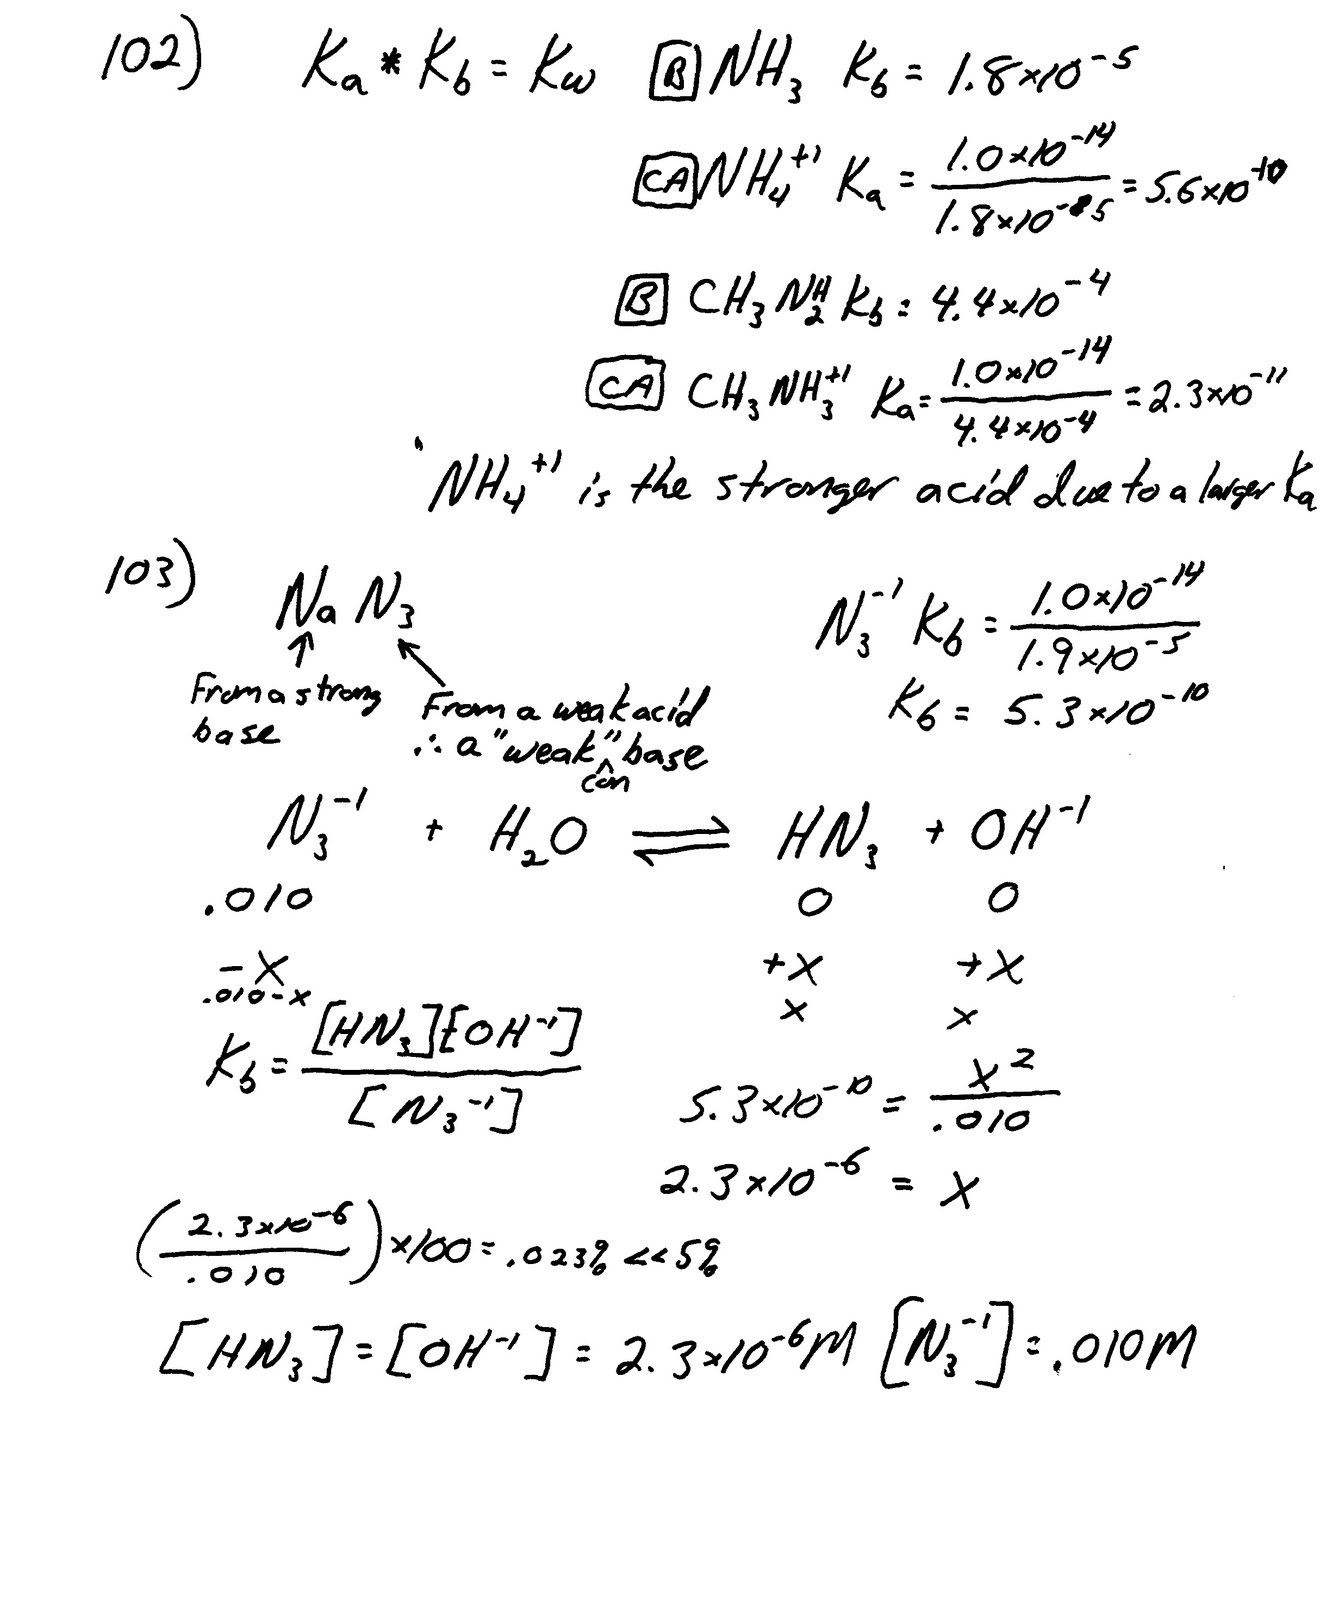 102) Ka * Kb = Kw [B] NH₃ Kb = 1.8×10⁻⁵
[CA] NH₄⁺¹ Ka = 1.0×10⁻¹⁴ / 1.8×10⁻⁵ = 5.6×10⁻¹⁰
[B] CH₃NH₂ Kb = 4.4×10⁻⁴
[CA] CH₃NH₃⁺¹ Ka = 1.0×10⁻¹⁴ / 4.4×10⁻⁴ = 2.3×10⁻¹¹
NH₄⁺¹ is the stronger acid due to a larger Ka
103) NaN₃
N₃⁻¹ Kb = 1.0×10⁻¹⁴ / 1.9×10⁻⁵
Kb = 5.3×10⁻¹⁰
From a strong
base
From a weak acid
∴ a "weak" ^ base
con
N₃⁻¹ + H₂O ⇌ HN₃ + OH⁻¹
.010 0 0
-x +x +x
.010-x x x
Kb = [HN₃][OH⁻¹] / [N₃⁻¹]
5.3×10⁻¹⁰ = x² / .010
2.3×10⁻⁶ = x
(2.3×10⁻⁶ / .010) ×100 = .023% << 5%
[HN₃] = [OH⁻¹] = 2.3×10⁻⁶ M [N₃⁻¹] = .010 M